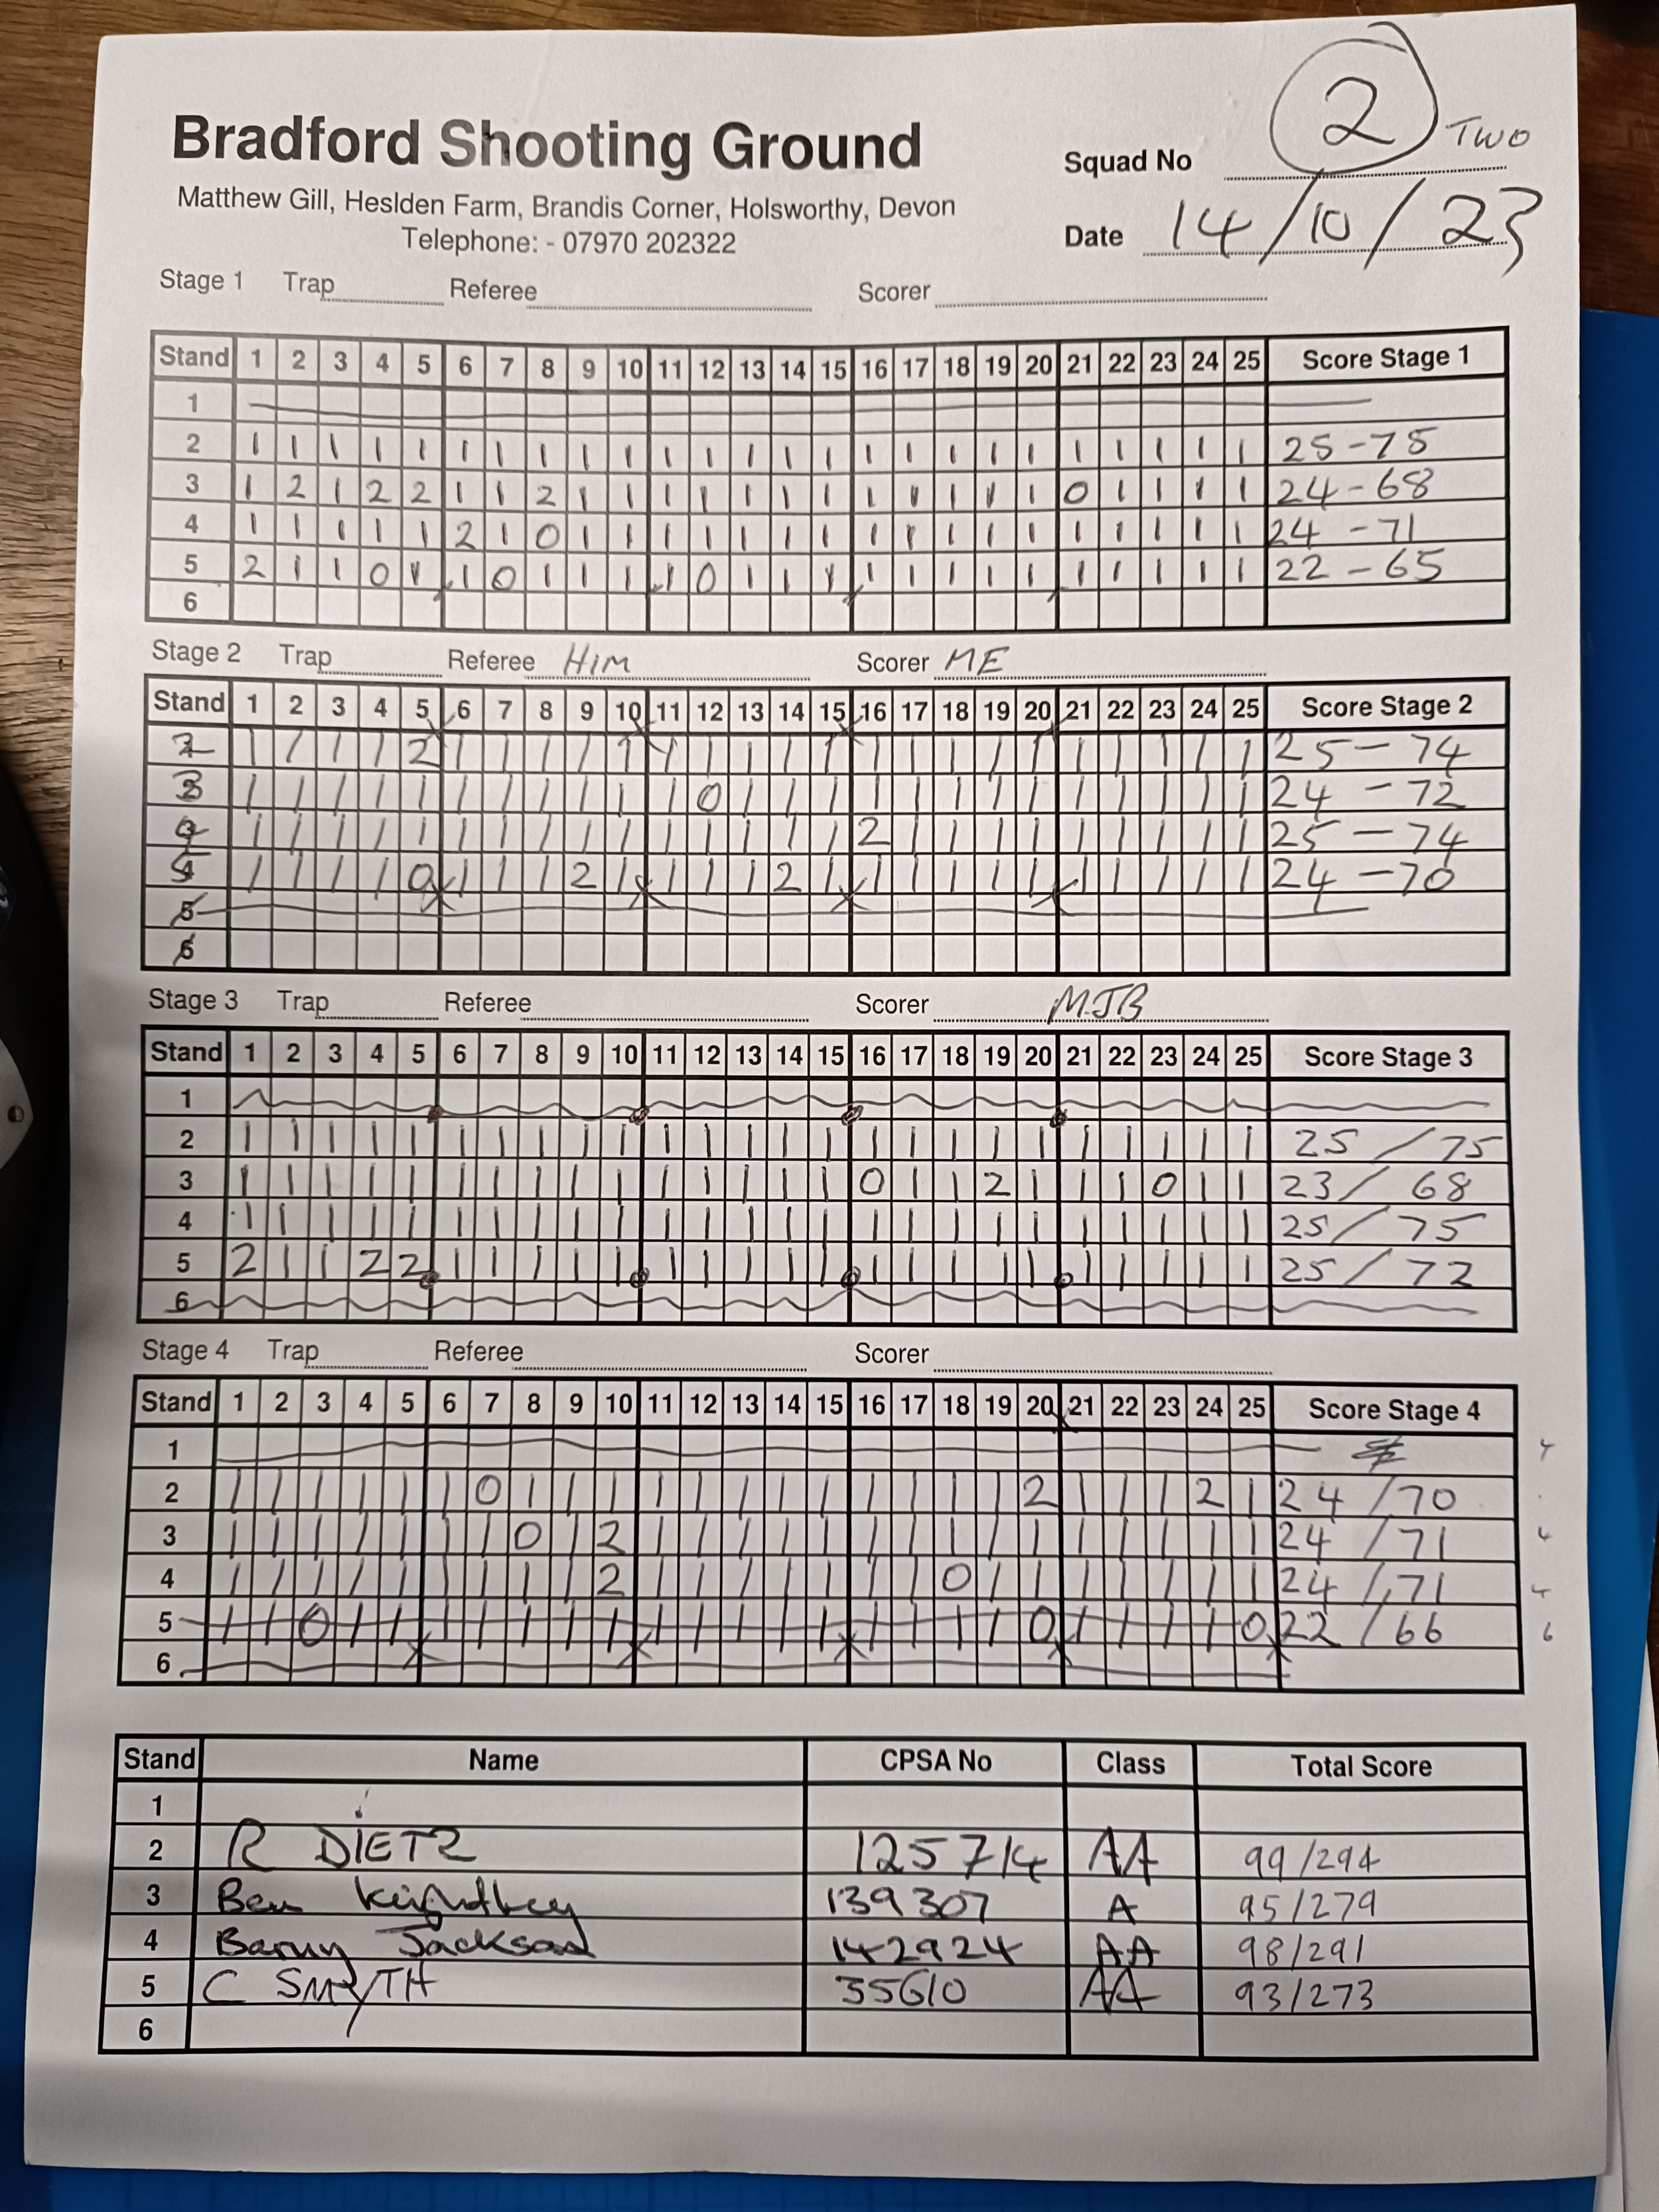 2 TWO
Bradford Shooting Ground
Squad No
Matthew Gill, Heslden Farm, Brandis Corner, Holsworthy, Devon
Date 14/10/23
Telephone: - 07970 202322
Stage 1 Trap Referee Scorer
Stand 1 2 3 4 5 6 7 8 9 10 11 12 13 14 15 16 17 18 19 20 21 22 23 24 25 Score Stage 1
1
2 1 1 1 1 1 1 1 1 1 1 1 1 1 1 1 1 1 1 1 1 1 1 1 1 1 25-75
3 1 2 1 2 2 1 1 2 1 1 1 1 1 1 1 1 1 1 1 1 0 1 1 1 1 24-68
4 1 1 1 1 1 2 1 0 1 1 1 1 1 1 1 1 1 1 1 1 1 1 1 1 1 24-71
5 2 1 1 0 1 1 0 1 1 1 1 0 1 1 1 1 1 1 1 1 1 1 1 1 1 22-65
6
Stage 2 Trap Referee HIM Scorer ME
Stand 1 2 3 4 5 6 7 8 9 10 11 12 13 14 15 16 17 18 19 20 21 22 23 24 25 Score Stage 2
2 1 1 1 1 2 1 1 1 1 1 1 1 1 1 1 1 1 1 1 1 1 1 1 1 1 25-74
3 1 1 1 1 1 1 1 1 1 1 1 0 1 1 1 1 1 1 1 1 1 1 1 1 1 24-72
4 1 1 1 1 1 1 1 1 1 1 1 1 1 1 1 2 1 1 1 1 1 1 1 1 1 25-74
5 1 1 1 1 0 1 1 1 2 1 1 1 1 2 1 1 1 1 1 1 1 1 1 1 1 24-70
5
6
Stage 3 Trap Referee Scorer MJB
Stand 1 2 3 4 5 6 7 8 9 10 11 12 13 14 15 16 17 18 19 20 21 22 23 24 25 Score Stage 3
1
2 1 1 1 1 1 1 1 1 1 1 1 1 1 1 1 1 1 1 1 1 1 1 1 1 1 25/75
3 1 1 1 1 1 1 1 1 1 1 1 1 1 1 1 0 1 1 2 1 1 1 0 1 1 23/68
4 1 1 1 1 1 1 1 1 1 1 1 1 1 1 1 1 1 1 1 1 1 1 1 1 1 25/75
5 2 1 1 2 2 1 1 1 1 1 1 1 1 1 1 1 1 1 1 1 1 1 1 1 1 25/72
6
Stage 4 Trap Referee Scorer
Stand 1 2 3 4 5 6 7 8 9 10 11 12 13 14 15 16 17 18 19 20 21 22 23 24 25 Score Stage 4
1
2 1 1 1 1 1 1 0 1 1 1 1 1 1 1 1 1 1 1 1 2 1 1 1 2 1 24/70
3 1 1 1 1 1 1 1 0 1 2 1 1 1 1 1 1 1 1 1 1 1 1 1 1 1 24/71
4 1 1 1 1 1 1 1 1 1 2 1 1 1 1 1 1 1 0 1 1 1 1 1 1 1 24/71
5 1 1 0 1 1 1 1 1 1 1 1 1 1 1 1 1 1 1 1 0 1 1 1 1 0 22/66 6
6
Stand Name CPSA No Class Total Score
1
2 R DIETZ 125714 AA 99/294
3 Ben Keightley 139307 A 95/279
4 Barny Jackson 142924 AA 98/291
5 C SMYTH 35610 AA 93/273
6